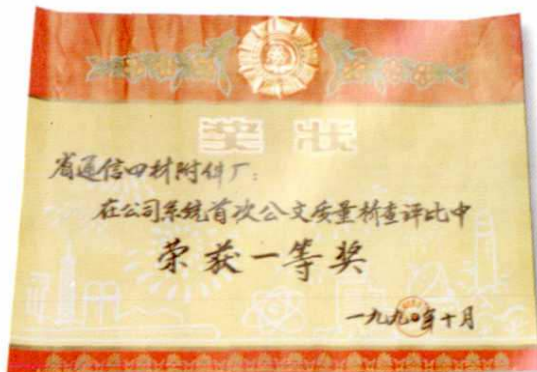 奖状
省通信四材附件厂：
在公司系统首次公文质量检查评比中
荣获一等奖
一九九〇年十月